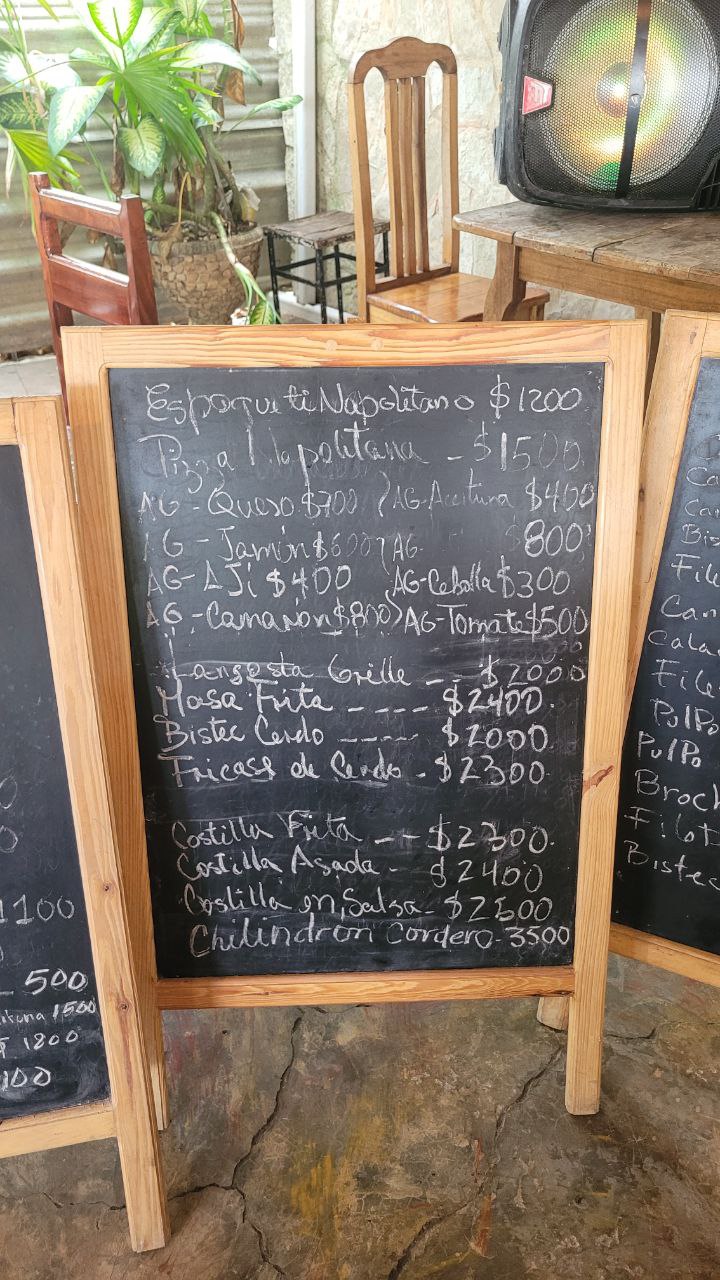 Espogueti Napolitano $1200
Pizza Napolitana - $1500
AG - Queso $700 AG-Aceituna $400
AG - Jamón $600 AG. 800
AG - AJí $400 AG-Cebolla $300
AG - Camaron $800 AG-Tomate $500
Langosta Grille -- $2000
Masa Frita ---- $2400.
Bistec Cerdo ----- $2000
Fricase de Cerdo - $2300
Costilla Frita -- $2300.
Costilla Asada - $2400
Costilla en Salsa $2500
Chilindron Cordero - 3500
1100
500
1500
1800
100
Bis
File
Cala
File
PulPo
PulPo
Broch
Bistec